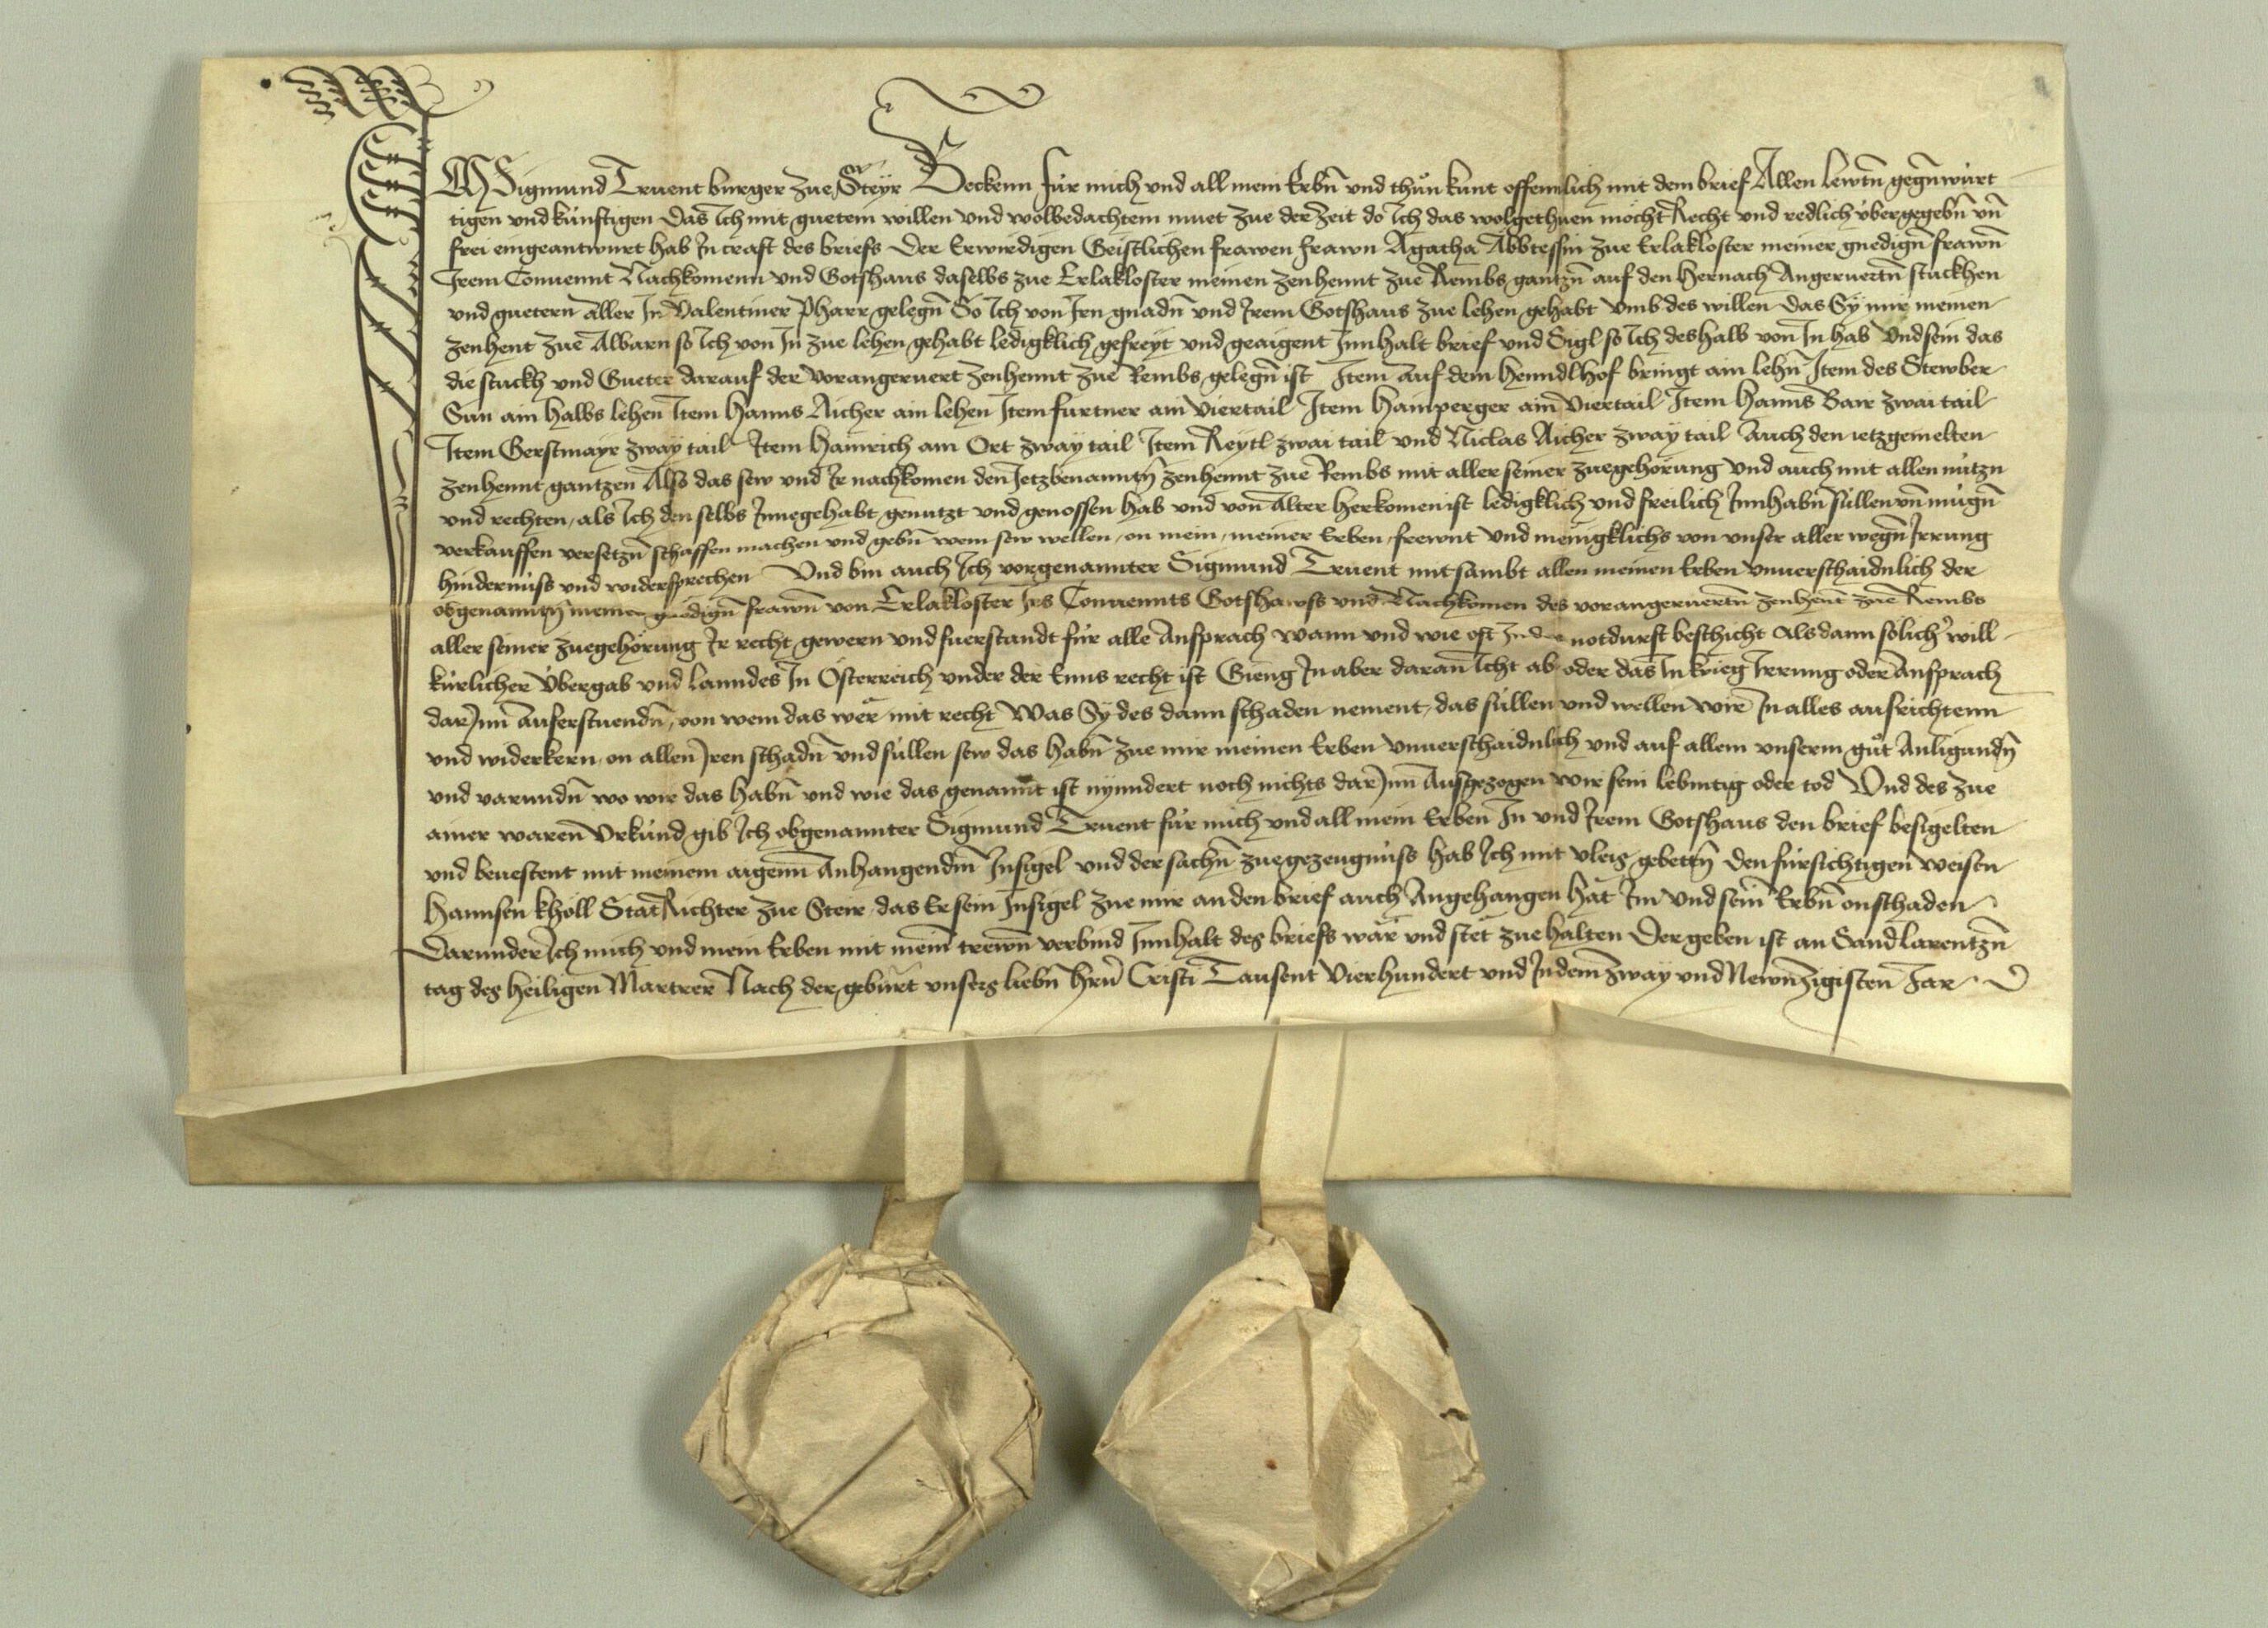 ICH Sigmund Truent burger zue Steyr Beckenn für mich und all mein Erbn̄ und thůn kunt offennlich mit dem brief Allen lewtn̄ gegnwürt
tigen und künftigen Das Ich mit guetem willen und wolbedachtem muet zue der Zeit do Ich das wolgethuen mocht Recht und redlich übergegebn̄ un̄
frei eingeantwurt hab In craft des briefs Der Erwirdigen Geistlichen frawen frawn Agatha Abbtessin zue Erlakloster meiner gnedign̄ frawn̄
Irem Convennt Nachkomenn und Gotshaus daselbs zue Erlakloster meinen zenhennt zue Rembs gantzn̄ auf den hernach Angeruertn̄ stuckhen
und guetern Aller In Valentiner Pharr gelegn̄ So Ich von Irn gnadn̄ und Irem Gotshaus zue lehen gehabt Umb des willen das Sy mir meinen
zenhent zue Albarn so Ich von In zue lehen gehabt ledigklich gefreyt und geaigent Innhalt brief und Sigl so Ich deshalb von In hab Und sein das
die stuckh und Gueter darauf der vorangeruert zenhennt zue Rembs gelegn̄ ist Item auf dem henndlhof bringt ain lehn̄ Item des Stewber
Sun ain halbs lehen Item Hanns Aicher ain lehen Item furtner ain viertail Item Hainperger ain viertail Item Hanns Baur zwai tail
Item Gerstmayr zway tail Item Hainrich am Ort zway tail Item Reytl zwai tail und Niclas Aicher zway tail Auch den ietzgemelten
zenhennt gantzen Also das sew und Ir nachkomen den Ietzbenanntn̄ zenhennt zue Rembs mit aller seiner zuegehörung und auch mit allen nützn
und rechten als Ich den selbs Innegehabt genutzt und genossen hab und von Alter herkomen ist ledigklich und freilich Innhabn̄ süllen un̄ mügn̄
verkauffen versetzn̄ schaffen machen und gebn̄ wem sew wellen on mein meiner Erben frewnt und menigklichs von unser aller wegn̄ Irrung
hindernüss und widersprechen Und bin auch Ich vorgenannter Sigmund Truent mitsambt allen meinen Erben unuerschaidnlich der
obgenanntn̄ meiner gnedign̄ frawn̄ von Erlakloster Irs Convennts Gotshawss und Nachkomen des vorangeruertn̄ zenhent zue Rembs
aller seiner zuegehörung Ir recht gewern und fuerstandt für alle Ansprach wann und wie oft notdurft beschicht als dann solicher will
kürlicher Übergab und lanndes In Österreich under der Enns recht ist Gieng In aber daran Icht ab oder das In krieg Irrung oder Ansprach
darInn Auferstuendn̄ von wem das wer mit recht Was Sy des dann schaden nement das süllen und wellen wir In alles aufrichtenn
und widerkern on allen Iren schadn̄ und süllen sew das habn̄ zue mir meinen Erben unuerschaidnlich und auf allem unserm gůt Anligundn̄
und varundn̄ wo wir das habn̄ und wie das genannt ist nynndert noch nichts darInn Ausgezogen wir sein lebmtig oder tod Und des zue
ainer waren Urkund gib Ich obgenannter Sigmund Truent für mich und all mein Erben In und Irem Gotshaus den brief besigelten
und beuestent mit meinem aigenn̄ Anhangendn̄ Insigel und der sachn̄ zuegezeugnüss hab Ich mit vleis gebetn̄ den fürsichtigen weisen
Hannsen khöll StatRichter zue Steir das Er sein Insigel zue mir an den brief auch Angehangen hat Im und sein Erbn̄ on schaden
Darunder Ich mich und mein Erben mit mein trewn̄ verbind Innhalt des briefs war und stet zue halten Der geben ist an Sand larentzn̄
tag des heiligen Martrer Nach der geburt unsers liebn̄ hrn̄ Cristi Tausent Vierhundert und In dem Zway und Newnzigisten Jar